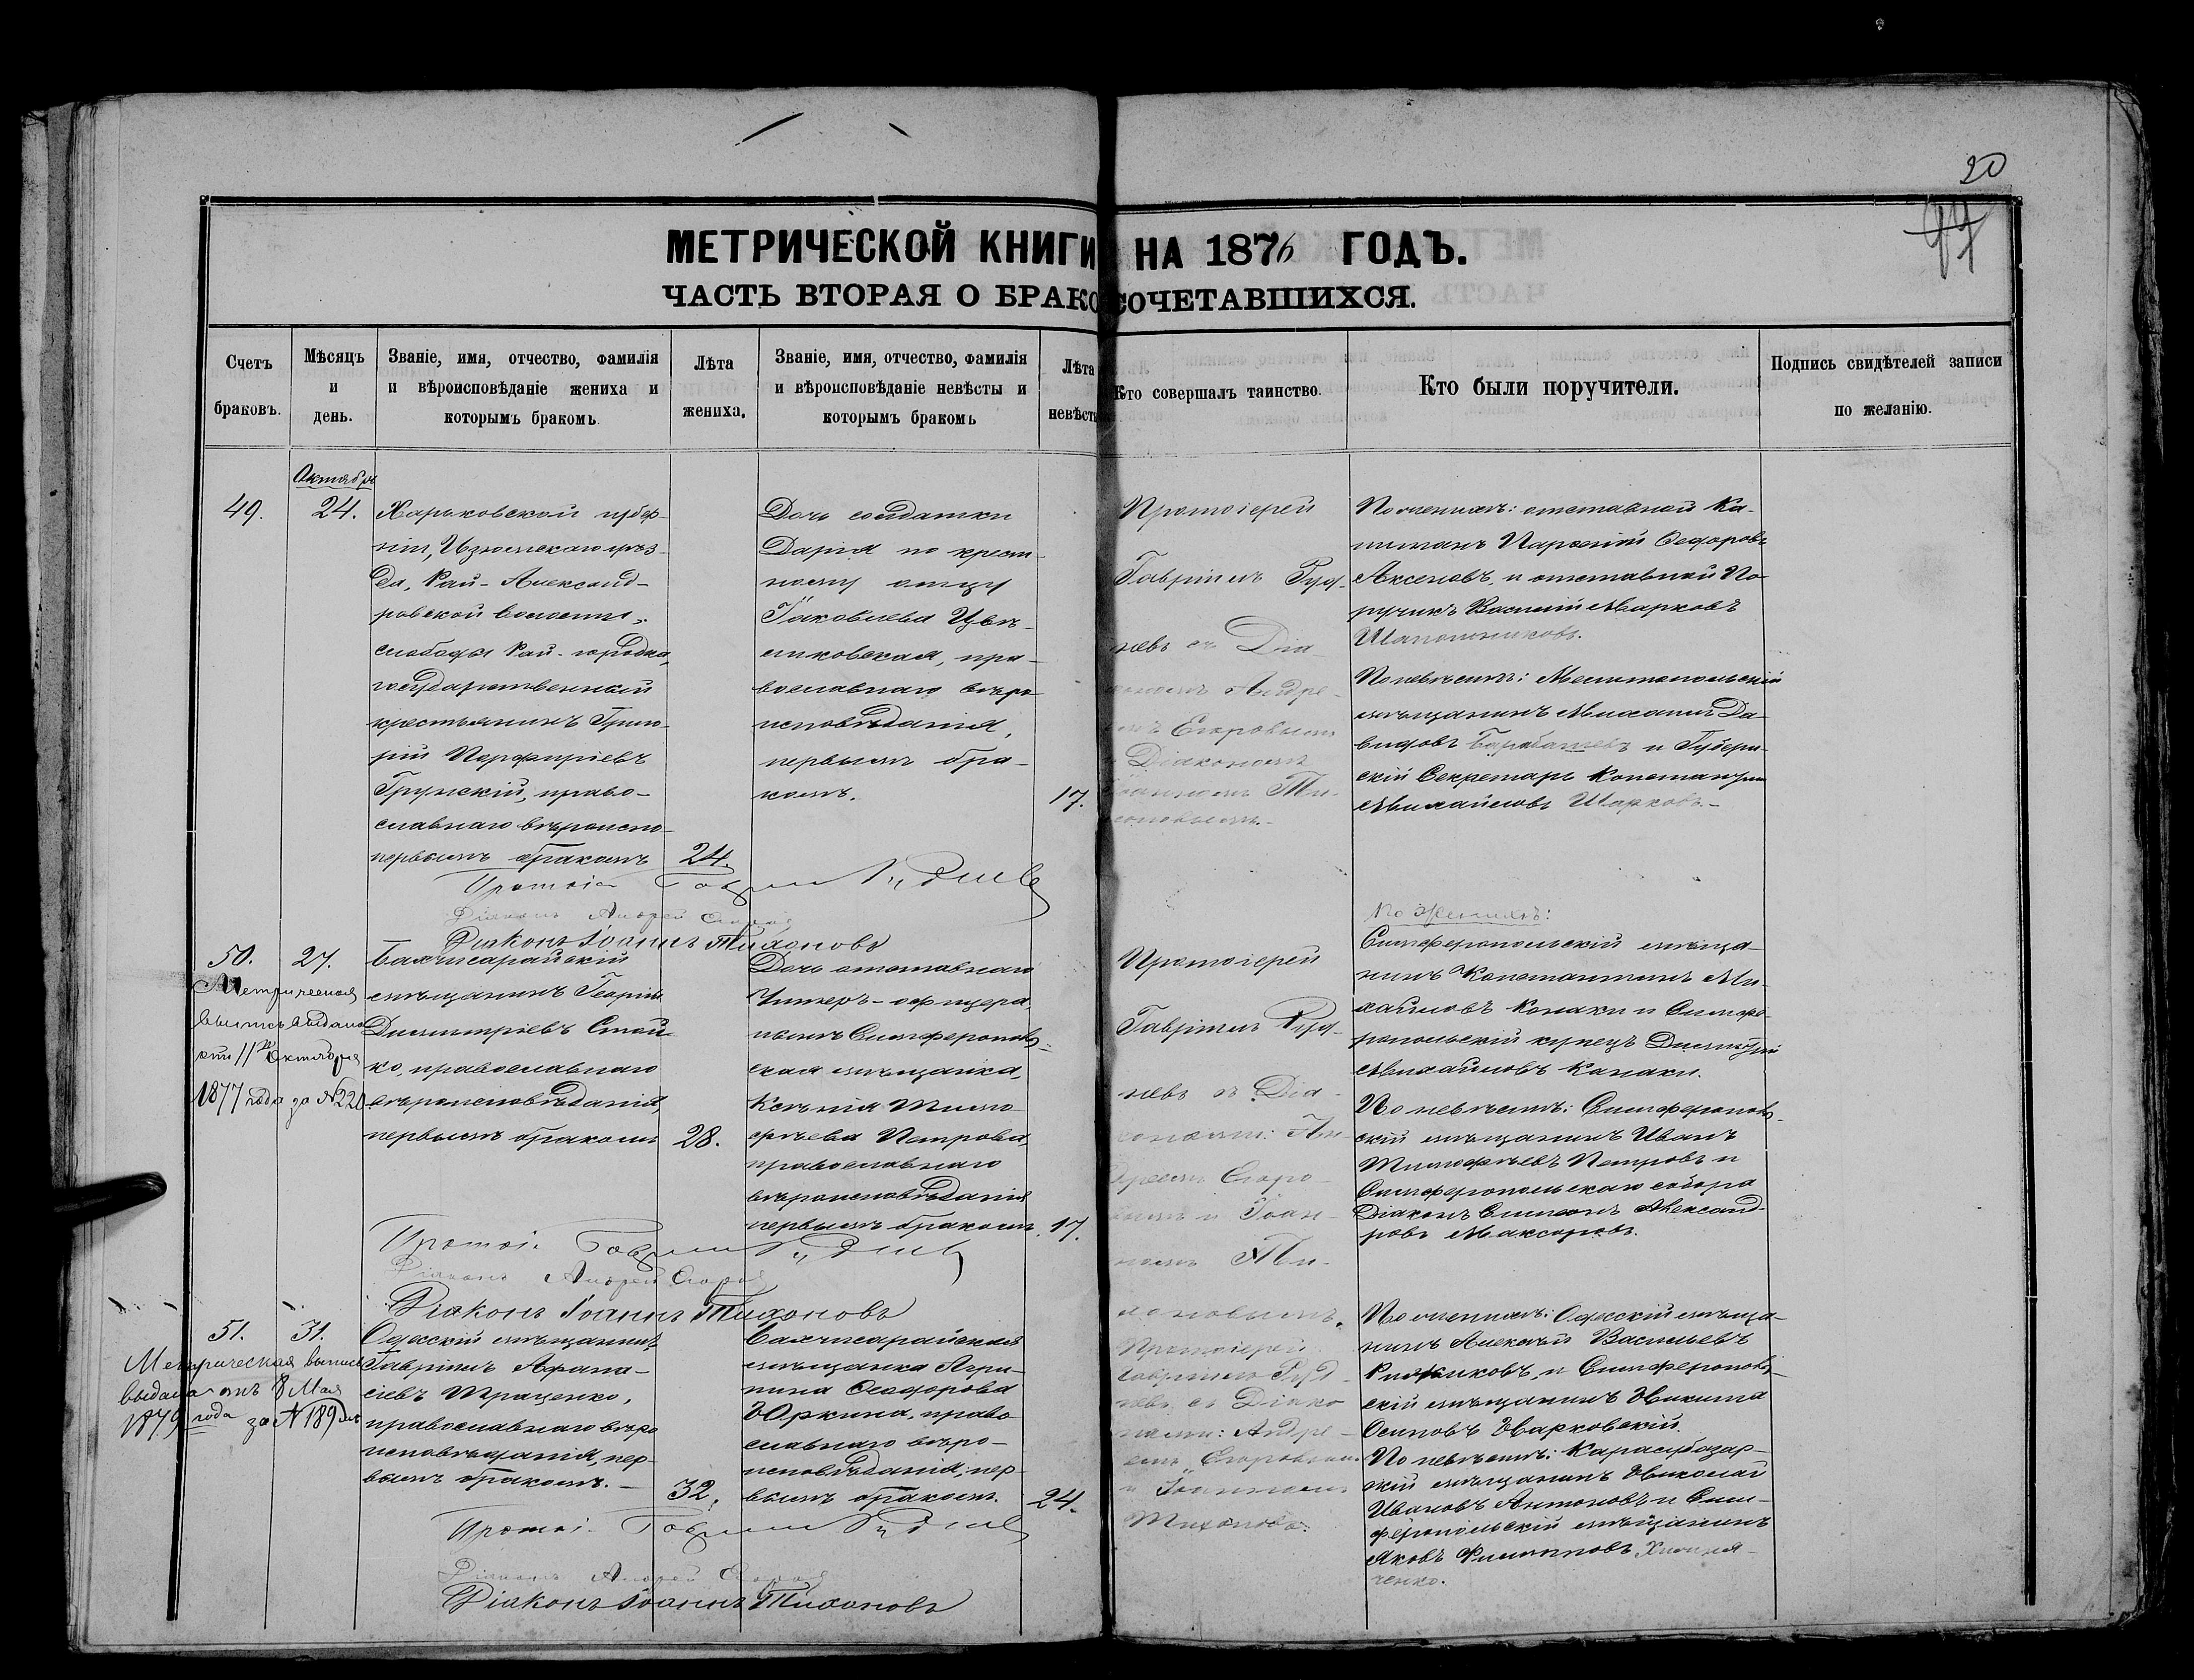 20
97
МЕТРИЧЕСКОЙ КНИГИ НА 1876 ГОДЪ.
ЧАСТЬ ВТОРАЯ О БРАКОСОЧЕТАВШИХСЯ.
Счетъ
браковъ.
Мѣсяцъ
и
день.
Званіе, имя, отчество, фамилія
и вѣроисповѣданіе жениха и
которымъ бракомъ.
Лѣта
жениха.
Званіе, имя, отчество, фамилія
и вѣроисповѣданіе невѣсты и
которымъ бракомъ
Лѣта
невѣсты
Кто совершалъ таинство.
Кто были поручители.
Подпись свидѣтелей записи
по желанію.
Октябрь
49.
24.
Харьковской губер-
ніи, Изюмскаго уѣз-
да, Рай-Александ-
ровской волости,
слободы Рай-городка,
государственный
крестьянинъ Григо-
рій Перфиріевъ
Грунскій, право-
славнаго вѣроиспо-
первымъ бракомъ
24.
Дочь солдатки
Дарія по крест-
ному отцу
Іаковлева Цвѣт-
ковская, пра-
вославнаго вѣро
исповѣданія,
первымъ бра-
комъ.
17.
Протоіерей
Гавріилъ Руд-
невъ съ Діа-
кономъ Андре-
емъ Егоровымъ
Діакономъ
Іоанномъ Ти-
хоновымъ.
По женихѣ: отставной Ка-
питанъ Парѳеній Ѳедоровъ
Аксеновъ, и отставной По-
ручикъ Василій Марковъ
Шапошниковъ.
По невѣстѣ: Мелитопольскій
мѣщанинъ Михаилъ Да-
видовъ Барабашевъ и Губерн-
скій Секретарь Константинъ
Михайловъ Шарковъ.
Протоіе Гавріилъ Рудневъ
Діаконъ Андрей Егоровъ
Діаконъ Іоаннъ Тихоновъ
50.
27.
Метрическая
выпись выдана
11го Октября
1877 года за № 220
Бахчисарайскій
мѣщанинъ Георгій
Димитріевъ Стой-
ко, православнаго
вѣроисповѣданія,
первымъ бракомъ
28.
Дочь отставнаго
Унтеръ-офицера,
нынѣ Симферополь-
ская мѣщанка,
Ксенія Тимо-
фѣева Петрова,
православнаго
вѣроисповѣданія
первымъ бракомъ.
17.
Протоіерей
Гавріилъ Руд-
невъ съ Діа-
кономъ: Ан-
дреемъ Егоро-
вымъ и Іоан-
номъ Ти-
хоновымъ.
По женихѣ:
Симферопольскій мѣща-
нинъ Константинъ Ми-
хайловъ Конаки и Симфе-
ропольскій купецъ Димитрій
Михайловъ Канаки.
По невѣстѣ: Симферополь-
скій мѣщанинъ Иванъ
Тимофѣевъ Петровъ и
Симферопольскаго собора
Діаконъ Симеонъ Александ-
ровъ Максоровъ.
Протоі. Гавріилъ Рудневъ
Діаконъ Андрей Егоровъ
Діаконъ Іоаннъ Тихоновъ
51.
31.
Метрическая выпись
выдана отъ 8 Мая
1879 года за № 189
Одесскій мѣщанинъ
Гавріилъ Афана-
сіевъ Троценко,
православнаго вѣро
исповѣданія, пер-
вымъ бракомъ.
32.
Бахчисарайская
мѣщанка Агри-
пина Ѳеодорова
Юркина, право
славнаго вѣро-
исповѣданія, пер-
вымъ бракомъ.
24.
Протоіерей
Гавріилъ Руд-
невъ съ Діако
номъ: Андре-
емъ Егоровымъ
и Іоанномъ
Тихоновъ.
По женихѣ: Одесскій мѣща-
нинъ Алексѣй Васильевъ
и Симферополь-
скій мѣщанинъ Никита
Осиповъ Жарковскій.
По невѣстѣ: Карасубазар-
скій мѣщанинъ Николай
Ивановъ Антоновъ и Сим-
феропольскій мѣщанинъ
Яковъ Филипповъ
ченко.
Протоі. Гавріилъ Рудневъ
Діаконъ Андрей Егоровъ
Діаконъ Іоаннъ Тихоновъ